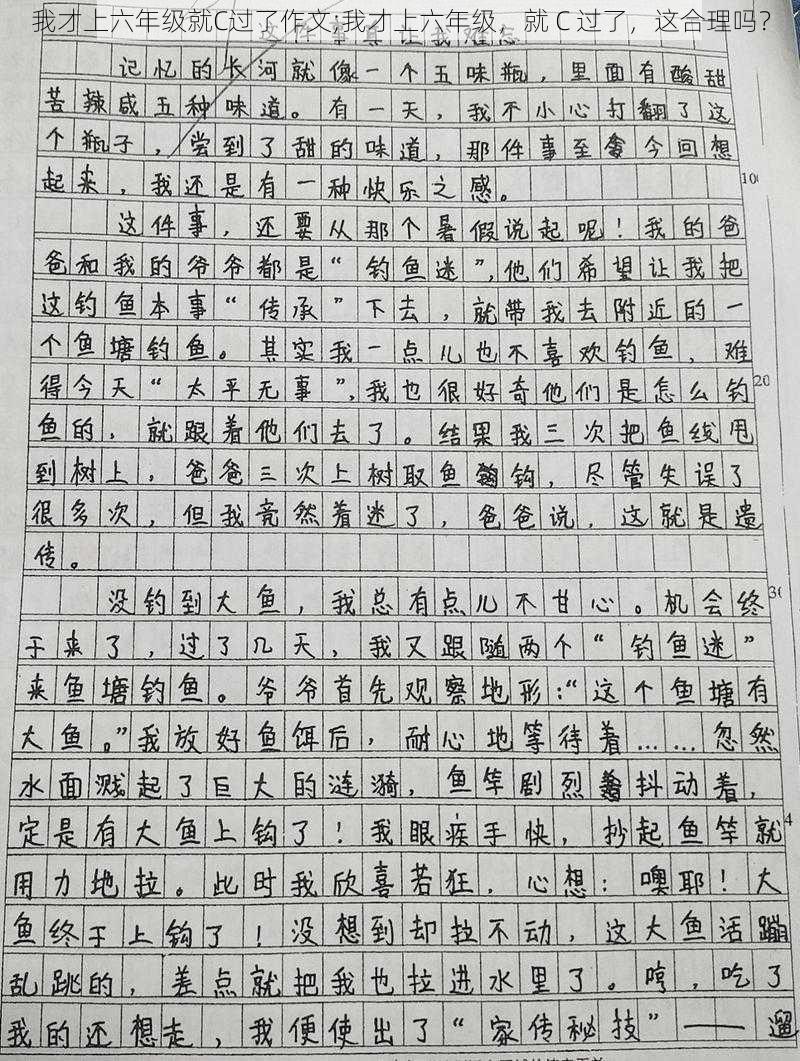 我才上六年级就C过了作文;我才上六年级，就 C 过了，这合理吗？
这件事真让我难忘
记忆的长河就像一个五味瓶，里面有酸甜
苦辣咸五种味道。有一天，我不小心打翻了这
个瓶子，尝到了甜的味道，那件事至今回想
起来，我还是有一种快乐之感。
10
这件事，还要从那个暑假说起呢！我的爸
爸和我的爷爷都是“钓鱼迷”，他们希望让我把
这钓鱼本事“传承”下去，就带我去附近的一
个鱼塘钓鱼。其实我一点儿也不喜欢钓鱼，难
得今天“太平无事”，我也很好奇他们是怎么钓
20
鱼的，就跟着他们去了。结果我三次把鱼线甩
到树上，爸爸三次上树取鱼钩，尽管失误了
很多次，但我竟然着迷了，爸爸说，这就是遗
传。
没钓到大鱼，我总有点儿不甘心。机会终
30
于来了，过了几天，我又跟随两个“钓鱼迷”
来鱼塘钓鱼。爷爷首先观察地形：“这个鱼塘有
大鱼。”我放好鱼饵后，耐心地等待着……忽然
水面溅起了巨大的涟漪，鱼竿剧烈抖动着，
定是有大鱼上钩了！我眼疾手快，抄起鱼竿就
4
用力地拉。此时我欣喜若狂，心想：噢耶！大
鱼终于上钩了！没想到却拉不动，这大鱼活蹦
乱跳的，差点就把我也拉进水里了。哼，吃了
我的还想走，我便使出了“家传秘技”——遛